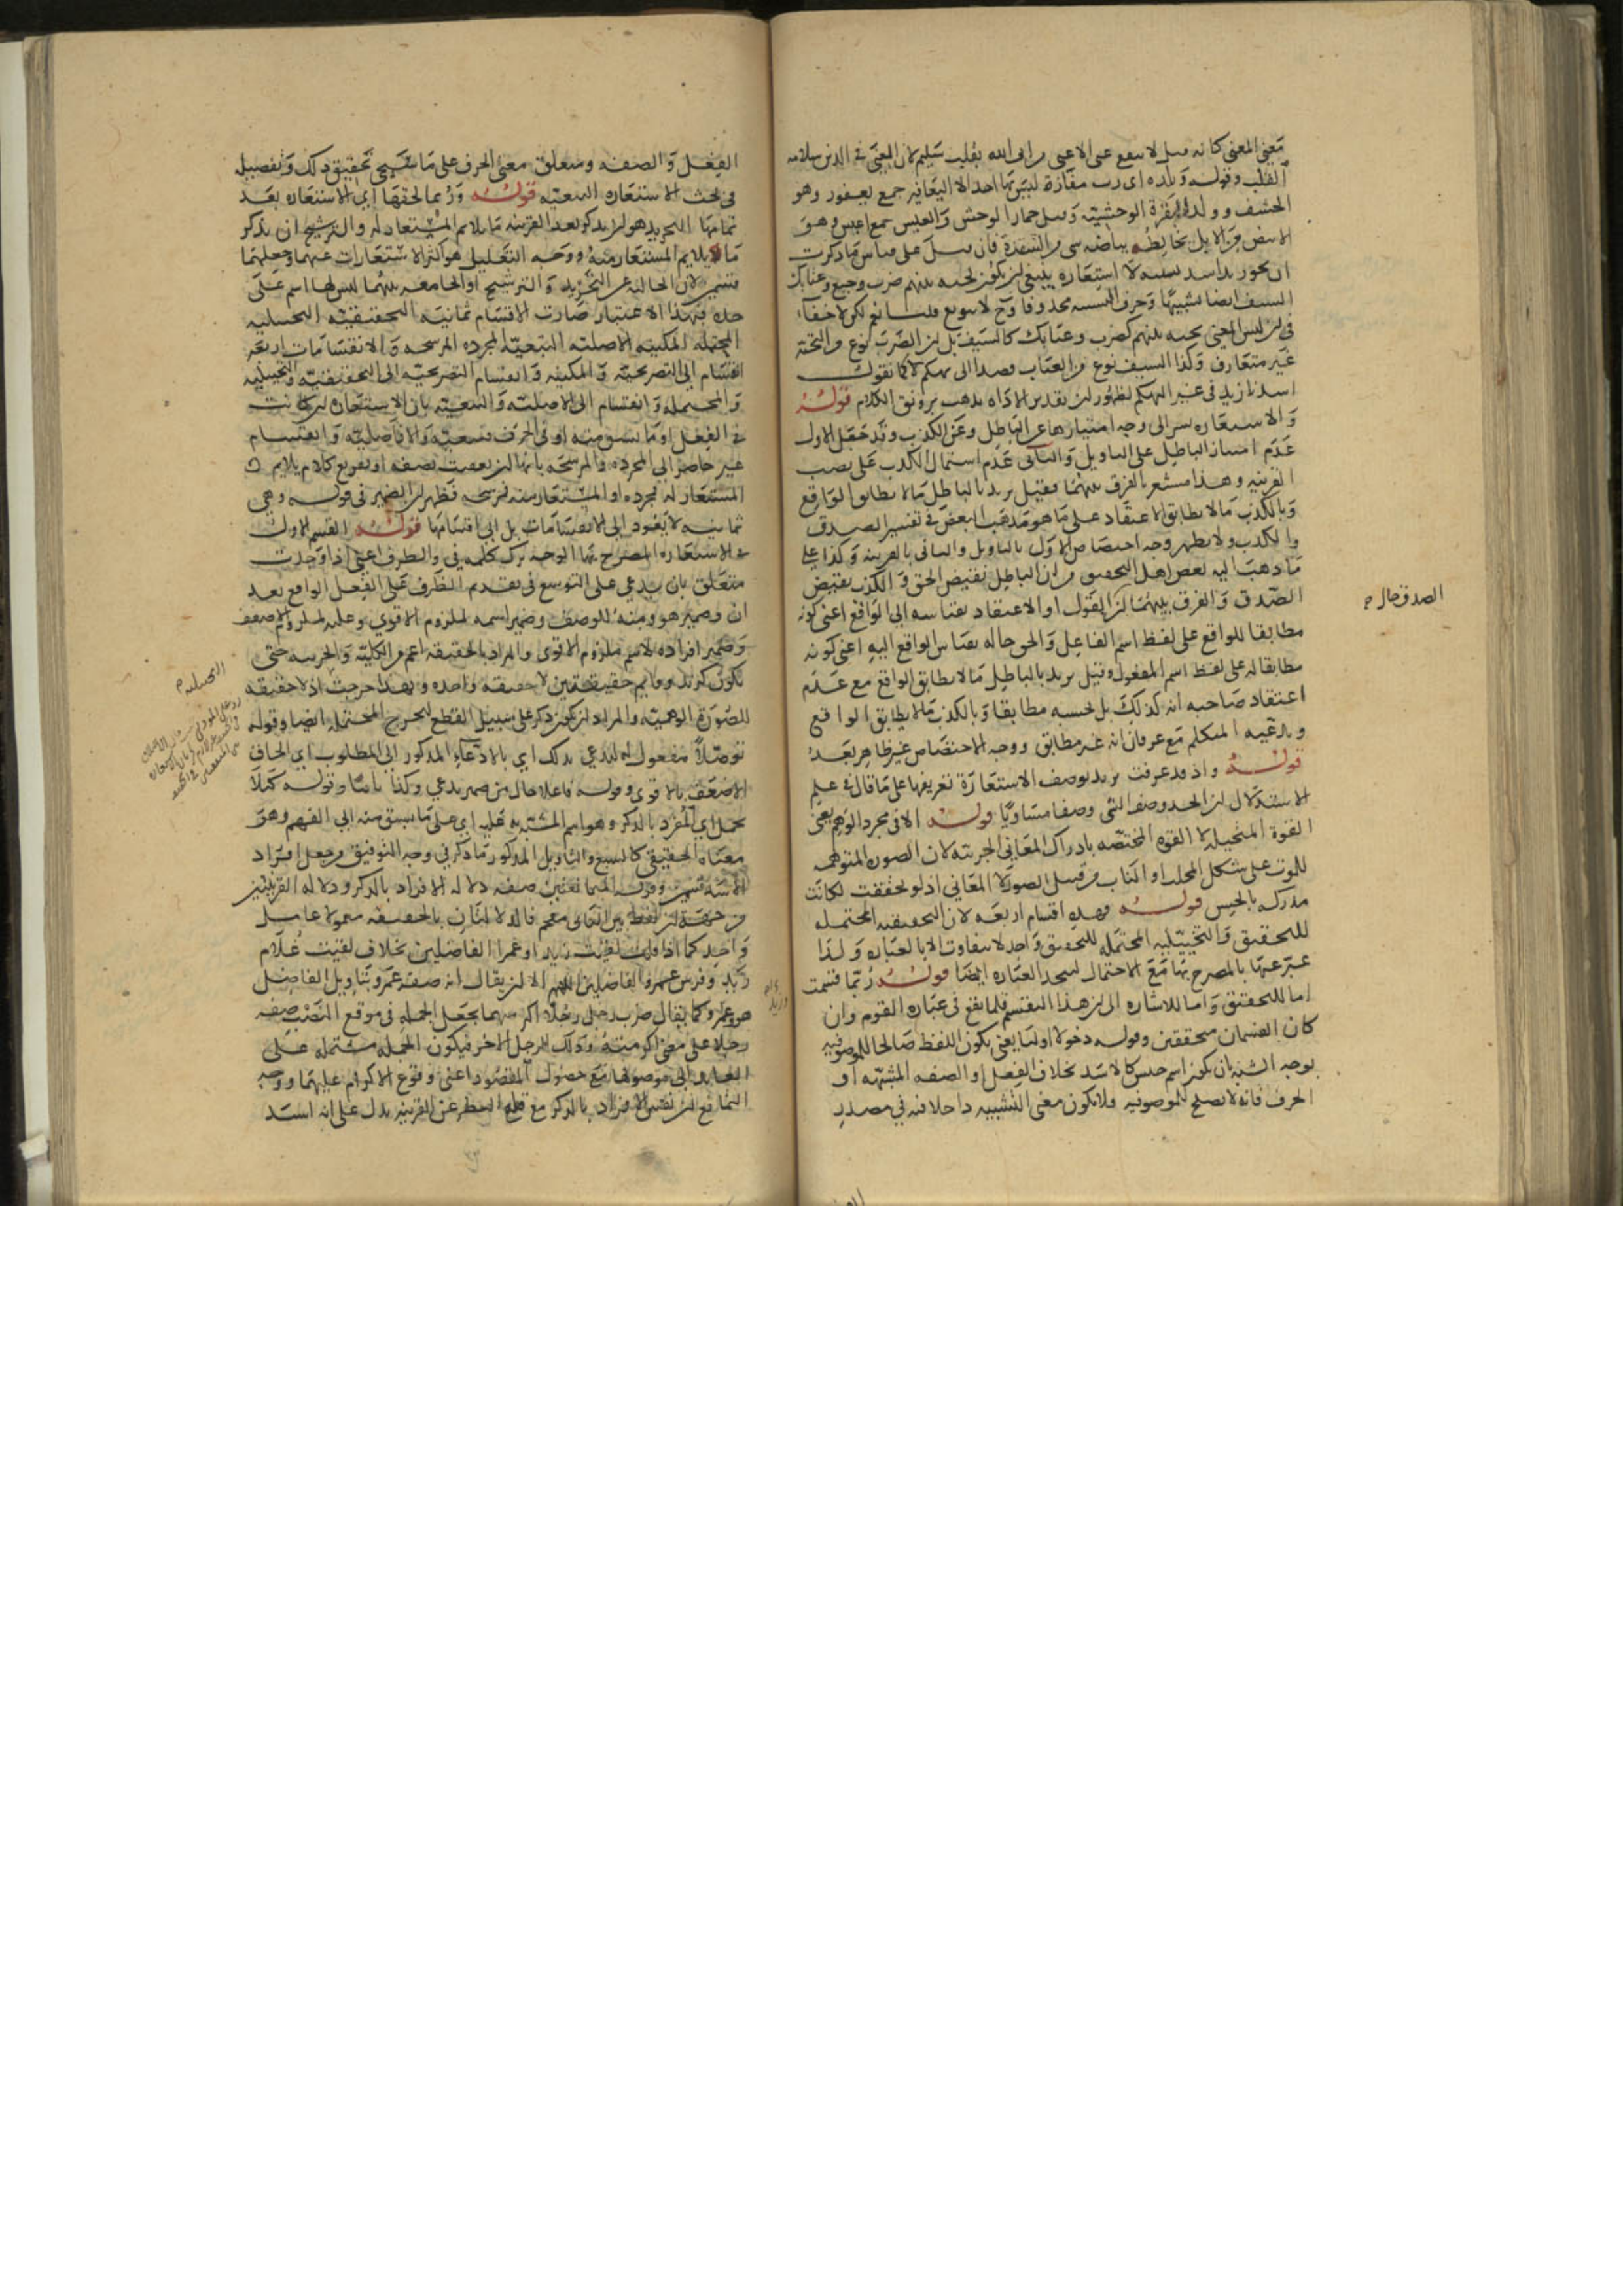 معنى المعنى كانه قيل لا ينفع غنى الاغنى من اتى الله بقلب سليم لان المعنى في الدين سلامه
القلب وقوله وبلده اى رب مفازة ليس بها احد الا اليعافير جمع يعفور وهو
الخشف وولد البقرة الوحشية وقيل حمار الوحش والعيس جمع اعيس وهو
الابيض من الابل يخالطه بياضه شى من الشقرة فان قيل على قياس ما ذكرت
ان نحو زيد اسد تشبيه لا استعارة ينبغى ان يكون تحيه بينهم ضرب وجيع وعتابك
السيف ايضا تشبيها وحرف التشبيه محذوفا وح لا تنويع قلنا نعم لكن لا خفآء
فى ان ليس المعنى تحيه بينهم كضرب وعتابك كالسيف بل ان الضرب نوع من التحيّة
غير متعارف وكذا السيف نوع من العتاب قصدا الى تهكم كما تقول
اسدنا زيد فى غير التهكم لظهور ان تقدير الاداه يذهب برونق الكلام قوله
والاستعاره يشير الى وجه امتيازها عن الباطل وعن الكذب وقد جعل الاول
عدم امتياز الباطل على التاويل والثانى عدم استمال الكذب على نصب
القرينه وهذا مشعر بالفرق بينهما فقيل يريد بالباطل ما لا يطابق الواقع
وبالكذب ما لا يطابق الاعتقاد على ما هو مذهب البعض فى تفسير الصدق
والكذب ولا يظهر وجه اختصاص الاول بالتاويل والثانى بالقرينه وكذا على
ما ذهب اليه بعض اهل التحقيق من ان الباطل نقيض الحق والكذب نقيض
الصدق والفرق بينهما ان القول او الاعتقاد بقياسه الى الواقع اعنى كونه
الصدق حال م
مطابقا للواقع على لفظ اسم الفاعل والحق حاله بقياس الواقع اليه اعنى كونه
مطابقا له على لفظ اسم المفعول وقيل يريد بالباطل ما لا يطابق الواقع مع عدم
اعتقاد صاحبه انه كذلك بل يحسبه مطابقا وبالكذب ما لا يطابق الواقع
ويدعيه المتكلم مع عرفان انه غير مطابق ووجه الاختصاص غير ظاهر بعد
قوله واذ قد عرفت يريد بوصف الاستعارة تعريفها على ما قال فى علم
الاستدلال ان الحد وصف الشى وصفا مساويا قوله الا فى مجرد الوهم يعنى
القوة المتخيله لا القوه المختصه بادراك المعانى الجزئيه لان الصوره المتوهمه
للموت على شكل المخلب او الناب من قبيل الصور لا المعانى اذ لو تحققت لكانت
مدركه بالحس قوله فهذه اقسام اربعه لان التحقيقيه المحتمله
للتحقيق والتخييليه المحتمله للتحقيق واحد لا تفاوت الا بالعباره ولذا
عبر عنها بالمصرح بها مع الاحتمال لتتحد العباره ايضا قوله ربما قسمت
اما للتحقيق واما للاشاره الى ان هذا التقسيم قلما يقع فى عباره القوم وان
كان القسمان متحققين وقوله دخولا اوليا يعنى يكون اللفظ صالحا للموصوفيه
بوجه الشبه بان يكون اسم جنس كالاسد بخلاف الفعل او الصفه المشتقه او
الحرف فانه لا يصلح للموصوفيه فلا يكون معنى التشبيه داخلا فيه في مصدر
الفعل والصفه ومتعلق معنى الحرف على ما سيجى تحقيق ذلك وتفصيله
فى بحث الاستعاره التبعيه قوله وربما لحقها اى الاستعاره بعد
تمامها التجريد هو ان يذكر بعد القرينه ما يلايم المستعار له والترشيح ان يذكر
ما يلايم المستعار منه ووجه التقليل هو اكثر الاستعارات عنهما وجعلهما
قسمين لان الخاليه عن التجريد والترشيح او الجامعه بينهما ليس لها اسم على
حده فبهذا الاعتبار صارت الاقسام ثمانيه التحقيقيه التخييليه
المحتمله المكنيه الاصليه التبعيه المجرده المرشحه والانقسامات اربعه
انقسام الى التصريحيه والمكنيه وانقسام التصريحيه الى التحقيقيه والتخييليه
والمحتمله وانقسام الى الاصليه والتبعيه بان الاستعاره ان كانت
فى الفعل او ما يشتق منه او فى الحرف فتبعيه والا فاصليه وانقسام
غير حاصر الى المجرده والمرشحه بانها ان تعقبت بصفه او تفريع كلام يلايم
المستعار له فمجرده او المستعار منه فمرشحه فظهر ان الضمير فى قوله وهى
ثمانيه لا يعود الى الانقسامات بل الى اقسامها قوله القسم الاول
فى الاستعاره المصرح بها الوجه ترك كلمه فى والظرف اعنى اذا وجدت
متعلق بان يدعي على التوسع فى تقديم الظرف على الفعل الواقع بعد
ان وضمير هو ومنه للوصف وضمير اسمه لملزوم الاقوى وعليه لملزوم الاضعف
وضمير افراده لاسم ملزوم الاقوى والمراد بالحقيقه اعم من الكليه والجزئيه حتى
يكون حقيقتين لا حقيقه واحده وبهذا خرجت اذ لا حقيقه
التخييليه م
للصورة الوهميه والمراد ان يكون ذكر على سبيل القطع ليخرج المحتمله ايضا وقوله
توصلا مفعول له ليدعي بذلك اي بالادعاء المذكور الى المطلوب اي الحاق
الاضعف بالاقوى وقوله فاعلا حال من ضمير يدعي وكذا بانيا وقوله كملا
يحمل اي المفرد بالذكر وهو اسم المشبه به عليه اي على ما يسبق منه الى الفهم وهو
معناه الحقيقى كالسبع والتاويل المذكور ما ذكر في وجه التوفيق من جعل افراد
الاسد قسمين وقوله صفه دلاله الافراد بالذكر ودلاله القرينتين
من جهة ان اللفظ بالحقيقه معمولا عامل
واحد كما اذا قلت لقيت زيدا وعمرا الفاضلين بخلاف لقيت غلام
زيد وفرس عمرو الفاضلين اللهم الا ان يقال انه صفه عمرو بتاويل الفاضل
هو وعمرو كما يقال ضرب رجل رجلا اكرمهما بجعل الجمله فى موقع النصب صفه
رجلا على معنى اكرمته وذلك الرجل الاخر فيكون الجمله مشتمله على
العايد الى موصوفها مع حصول المقصود اعنى وقوع الاكرام عليهما ووجه
التمانع ان نفس الافراد بالذكر مع قطع النظر عن القرينه يدل على انه اسد